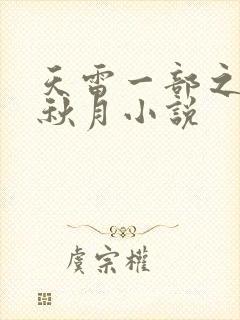 天雷一部之
秋月小説
虞宗權